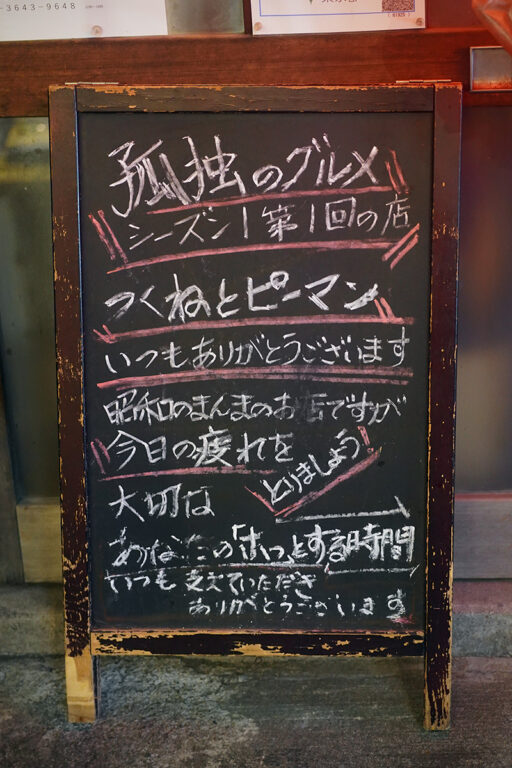 -3643-9648
孤独のグルメ
シーズン1第1回の店
つくねとピーマン
いつもありがとうございます
昭和のまんまのお店ですが
今日の疲れを
とりましょう!
大切な
あなたの「ホッ」とする時間
いつも支えていただき
ありがとうございます